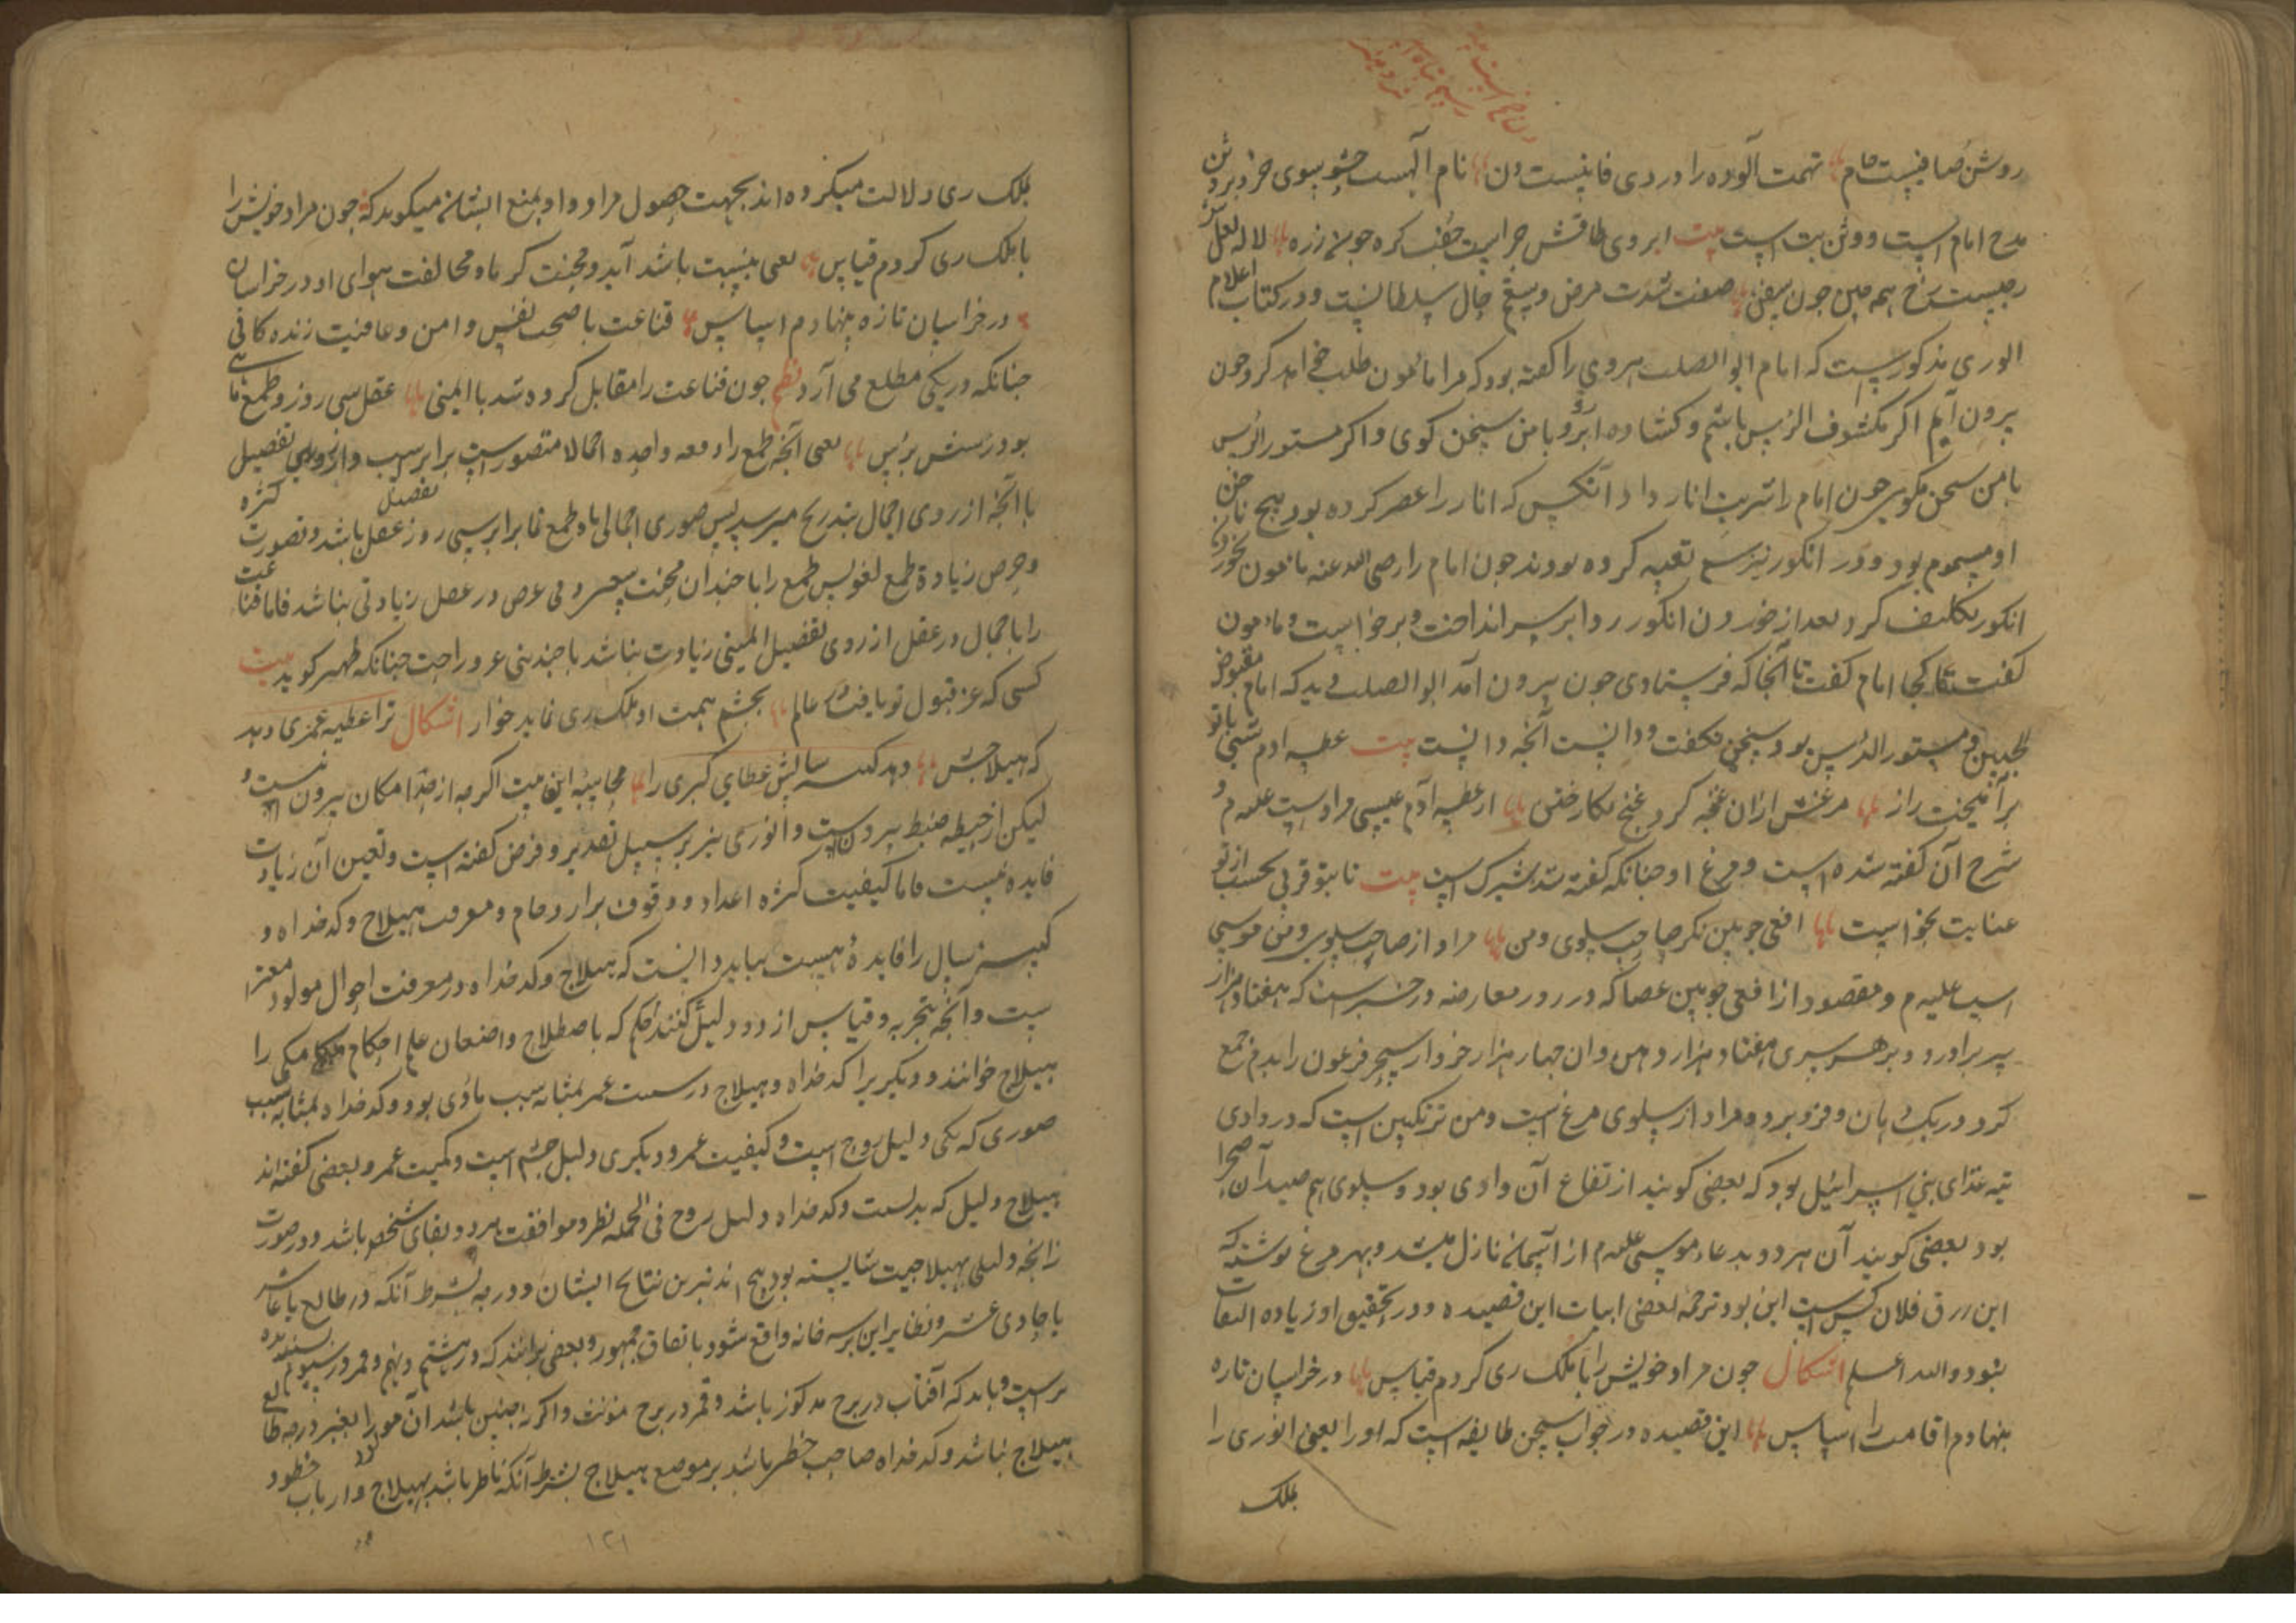 روشن صافیست مام تهمت آلوده را دردی فانیست دن نام الهست حشو بسوی خرد برد شن
مدح امام است و وثن بت است بیت ابروی طاقش جراست جفت کره جون زره لاله لعل
رجیست رخ همه جین جون صفت شدت مرض و حال سلطانیست و در کتاب اعلام
الوری مذکورست که امام ابوالصلت هروی را کفته بود که مرا مامون طلب خواهد کرد جون
بیرون آیم اکر مکشوف الرئس باشم و کشاده ابرو با من سخن کوی و اکر مستور الرئس
با من سخن مکوی جون امام را شربت انار داد آنکس که انار را عصر کرده بود بیخ ناخن
او مسموم بود و در انکور نیز سم تعبیه کرده بودند جون امام را رضی الله عنه مامون بخوردن
انکور تکلیف کرد بعد از خوردن انکور ردا بر سر انداخت و برخواست و مامون
کفت تا کجا امام کفت تا آنجا که فرستادی جون بیرون آمد ابوالصلت دید که امام مقبوض
الجبین و مستور الرئس بود سخن نکفت و دانست آنجه دانست بیت عطسه آدم شبی باتو
برآمیخت راز مرغش ازان غنجه کرد غنج نکار ختن از عطسه آدم عیسی مراد است علیه م و
شرح آن کفته شده است و مرغ او جنانکه کفته شد شبرک است بیت تا بتو قربی بحسب از تو
عنایت بخواست افعی جوبین نکر صاحب سلوی و من مراد از صاحب سلوی و من موسی
است علیه م و مقصود از افعی جوبین عصا که در روز معارضه در خبرست که هفتاد هزار
سر برآورد و بر هر سری هفتاد هزار دهن و آن جهار هزار خروار سحر فرعون را بدم جمع
کرد و در یک دهان و فرو برد و مراد از سلوی مرغ است و من ترنکبین است که در وادی
تیه غذای بنی اسرائیل بود که بعضی کویند از تفاع آن وادی بود و سلوی هم صید آن صحرا
بود بعضی کویند آن هر دو بدعاء موسی علیه م از آسمان نازل میشد و بهر مرغ نوشته که
این رزق فلان کس است این بود ترجمه بعضی ابیات این قصیده و در تحقیق او زیاده التفات
نبود والله اعلم اشکال جون مراد خویش را با ملک ری کردم قیاس در خراسان تازه
بنهادم اقامت را اساس این قصیده در جواب سخن طایفه است که او را یعنی انوری را
بملک
بملک ری دلالت میکرده اند بجهت حصول مراد و او بمنع ایشان میکوید که جون مراد خویش را
با ملک ری کردم قیاس یعنی بنسبت باشد آید و محنت کرما و مخالفت هوای او در خراسان
در خراسان تازه بنهادم اساس قناعت با صحت نفس و امن و عافیت زنده کافی
جنانکه در یکی مطلع می آرد نظم جون قناعت را مقابل کرده شد با ایمنی عقل سی روز و طمع ماهی
بود رستش برس یعنی آنجه طمع را دفعه واحده اجمالا متصور است برابر است و از روی تفصیل
با آنجه از روی اجمال بتدریج میرسد بس صوری اجمالی ماه طمع نما برابر سی روز عقل باشد و تصورت
و حرص زیادة طمع لغو بس طمع را با جندان محنت بیعسر و بی عرض در عقل زیادتی نباشد فاما قناعت
را با اجمال در عقل از روی تفصیل ایمنی زیادت نباشد با جندینی عز و راحت جنانکه ظهیر کوید بیت
کسی که عز قبول تو یافت در عالم بجشم همت او ملک ری نماید خوار اشکال ترا عطیه عمری دهد
که هیلاجش دهد کسه سالش عطای کبری را محاسبه این بیت اکر جه از حد امکان بیرون نیست و
لیکن از حیطه ضبط بیرونست و انوری نیز بر سبیل تقدیر و فرض کفته است و تعین آن زیادت
فایده نیست فاما کیفیت کثره اعداد و وقوف بر ارحام و معرفت هیلاج و کدخداه و
کبیسه سال را فایدهٔ هست بباید دانست که هیلاج و کدخداه در معرفت احوال مولود معتبر
ست و آنجه بتجربه و قیاس از دو دلیل کنند حکم که باصطلاح واضعان علم احکام یکی را
هیلاج خوانند و دیکری را کدخداه و هیلاج در سمت عمر بمثابه سبب مادی بود و کدخداه بمثابه سبب
صوری که یکی دلیل روح است و کیفیت عمر و دیکری دلیل جسم است و کمیت عمر و بعضی کفته اند
هیلاج دلیل که بدنست و کدخداه دلیل روح فی الجمله نظر و موافقت هر دو بقای شخص باشد و در صورت
زایجه دلیلی بهیلاجیت شایسته بود بنج اند نیرین نتایج ایشان و درجه بشرط آنکه در طالع یا عاشر
یا حادی عشر و نظایر این هر سه خانه واقع شود باتفاق جمهور و بعضی برانند که در هشتم و نهم و قمر در سیوم بسندیده
ترست و باید که آفتاب در برج مذکور باشد و قمر در برج مونث و اکر نه جنین باشد آن مولود را بغیر درجه طالع
هیلاج نباشد و کدخداه صاحب حظ باشد بر موضع هیلاج بشرط آنکه ناظر باشد بهیلاج و ارباب حظوظ
۱۲۱